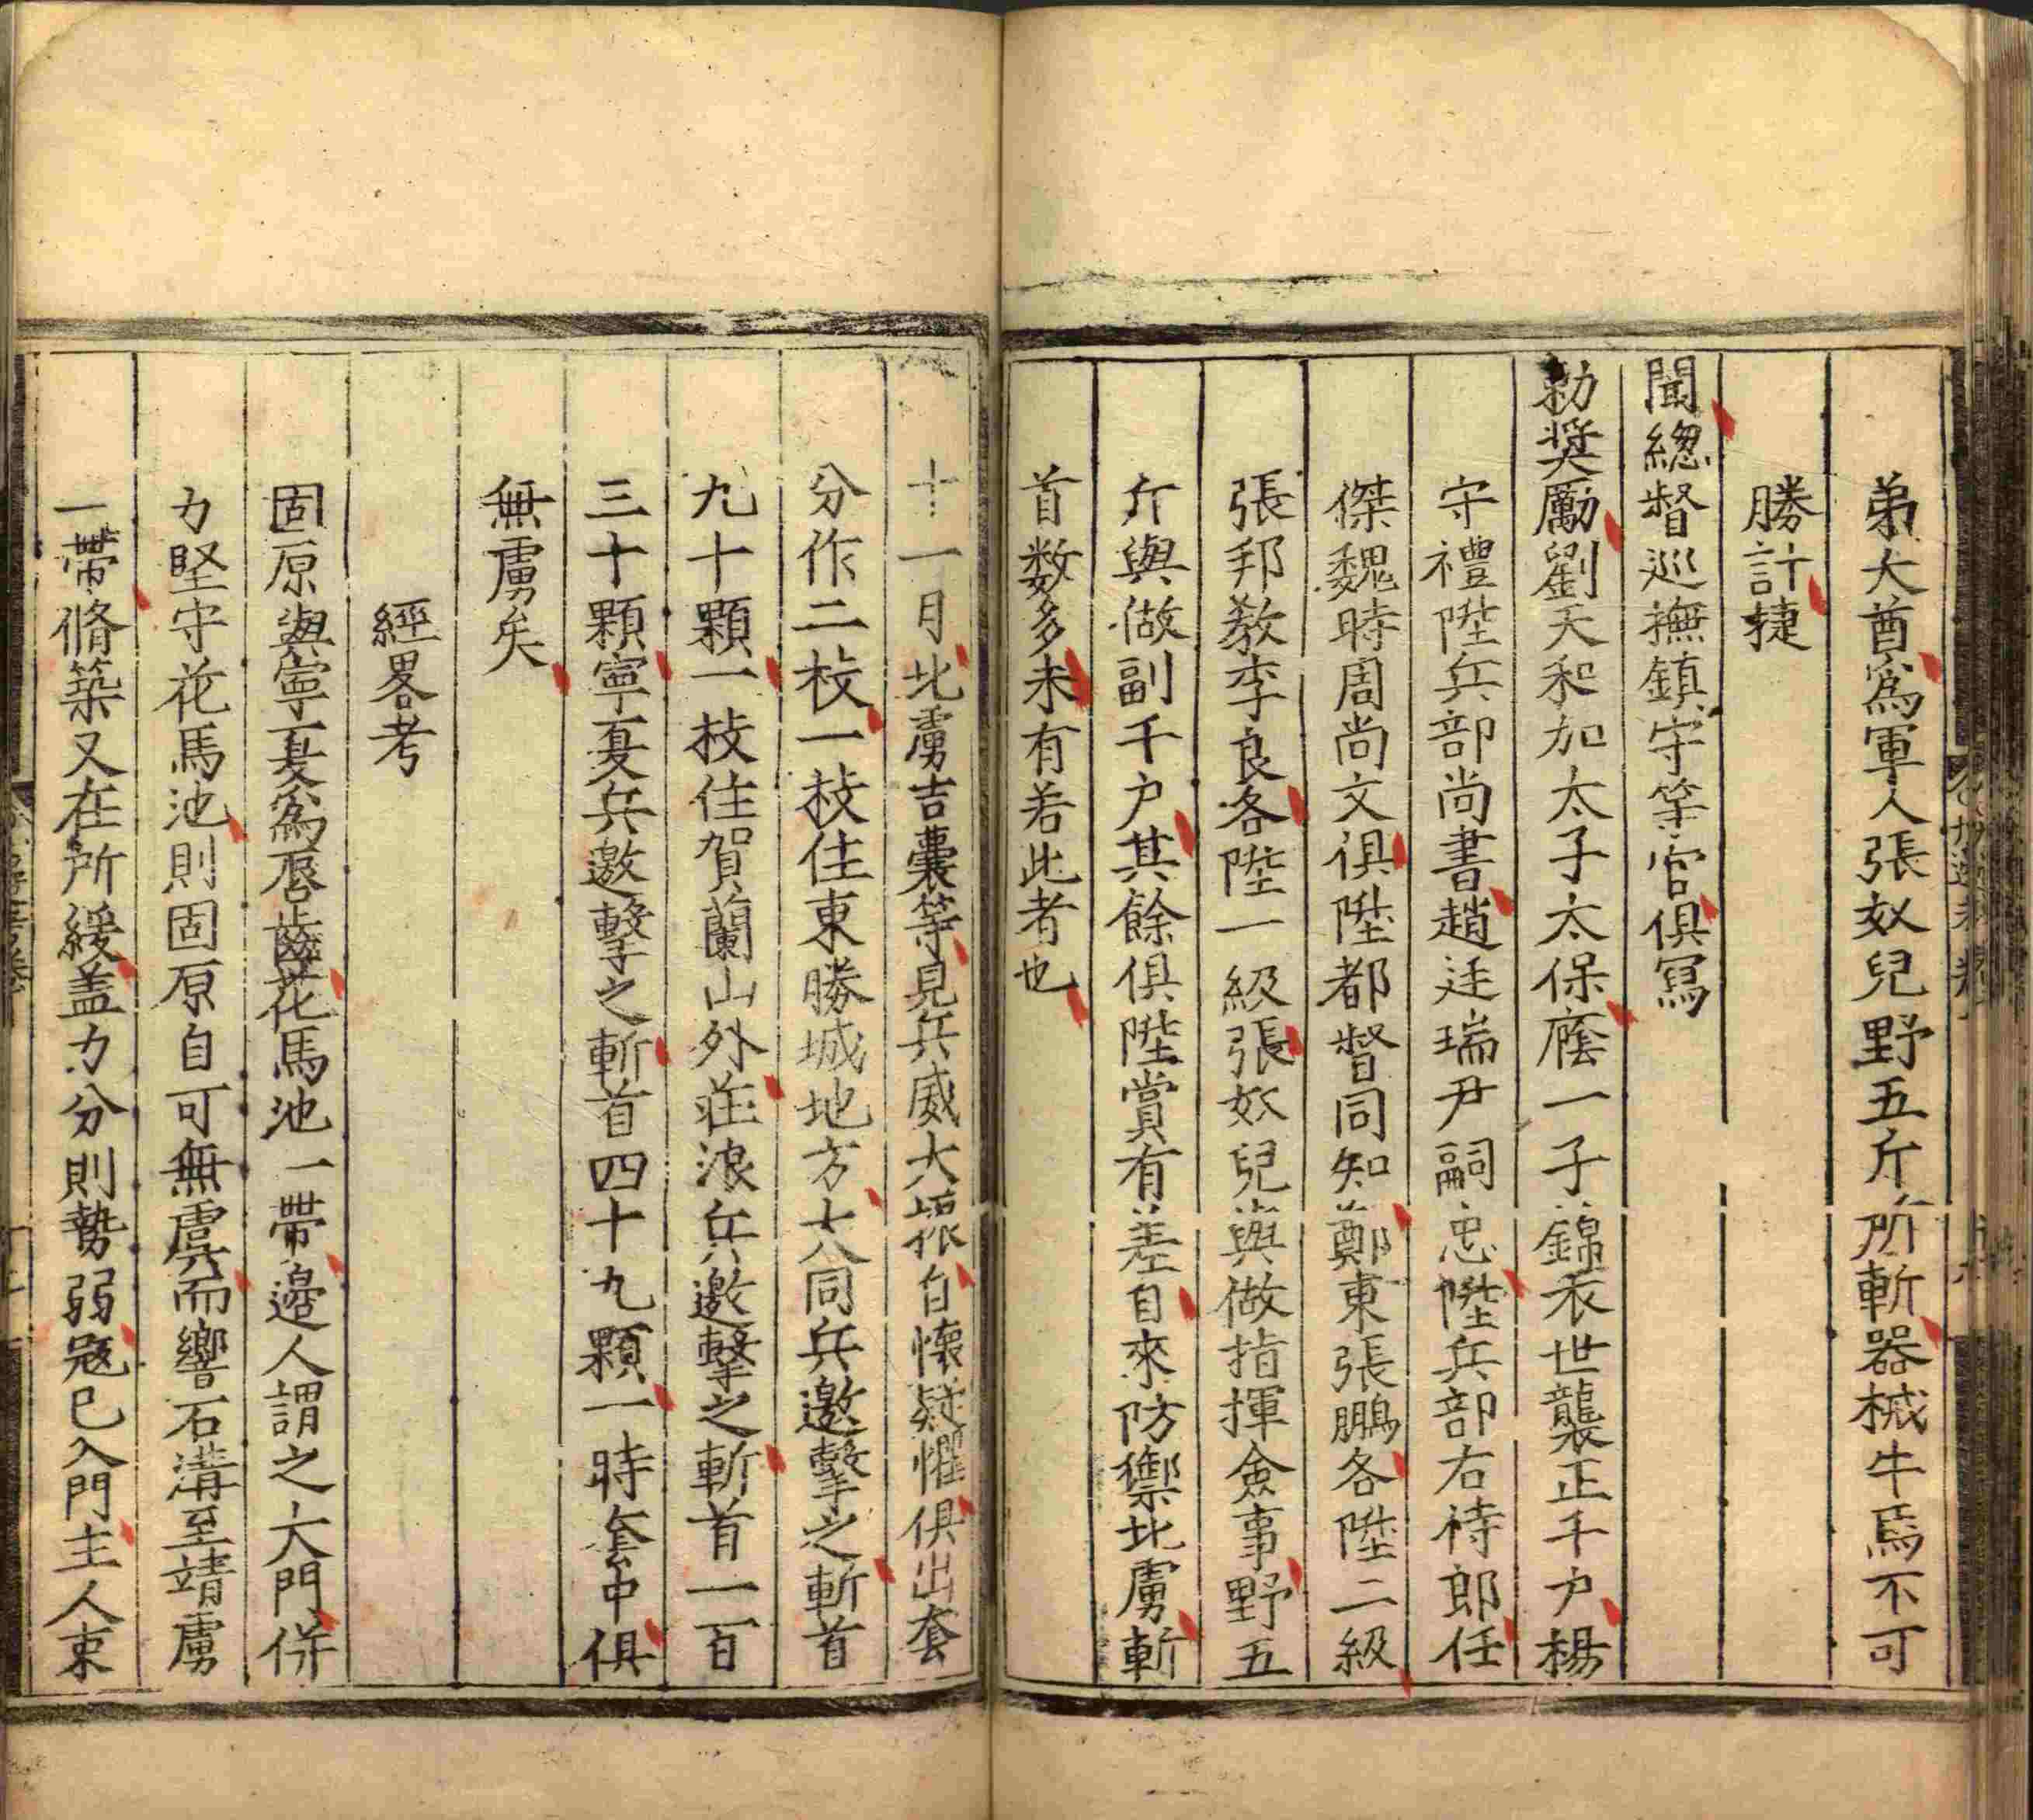 弟大酋爲軍人張奴兒野五斤所斬器械牛馬不可
勝計捷
聞總督巡撫鎮守等官俱寫
勅奨勵劉天和加太子太保廕一子錦衣世襲正千户楊
守禮陞兵部尚書趙廷瑞尹嗣忠陞兵部右待郎任
傑魏時周尚文俱陞都督同知鄭東張鵬各陞二級
張邦教李良各陞一級張奴兒與做指揮僉事野五
斤與做副千户其餘俱陞賞有差自來防禦北虜斬
首数多未有若此者也
十一月北虜吉囊等見兵威大振自懷疑懼俱出套
分作二枝一枝住東勝城地方大同兵邀擊之斬首
九十顆一枝住賀蘭山外莊浪兵邀擊之斬首一百
三十顆寧夏兵邀擊之斬首四十九顆一時套中俱
無虜矣
經畧考
固原與寧夏爲唇齒花馬池一帶邊人謂之大門併
力堅守花馬池則固原自可無虞而響石溝至靖虜
一帶脩築又在所緩盖力分則勢弱寇已入門主人束